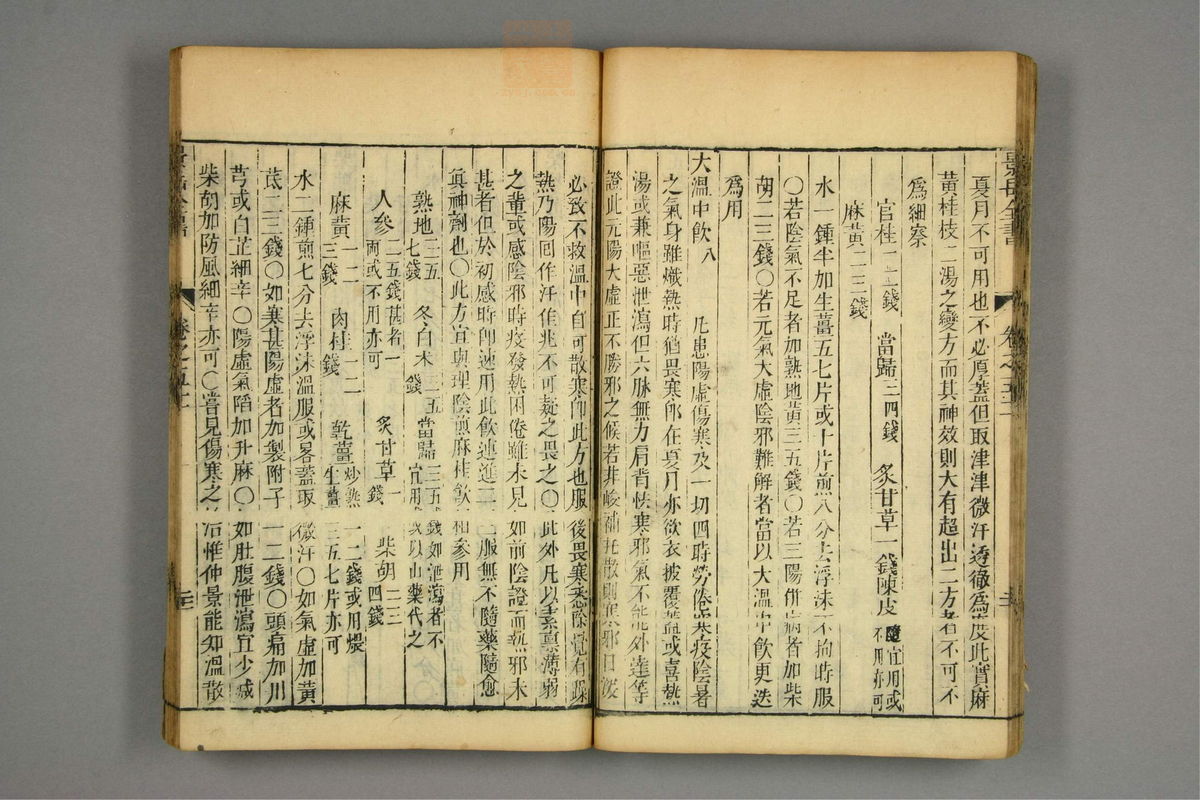 夏月不可用也不必厚蓋但取津津微汗透徹為度此實麻
黃桂枝二湯之變方而其神效則大有超出二方者不可不
為細察
官桂 一二錢 當歸 三四錢 炙甘草 一錢 陳皮 隨宜用或不用亦可
麻黃 二三錢
水一鍾半加生薑五七片或十片煎八分去浮沫不拘時服
〇若陰氣不足者加熟地黃三五錢〇若三陽併病者加柴
胡二三錢〇若元氣大虛陰邪難解者當以大溫中飲更迭
為用
大溫中飲 八 凡患陽虛傷寒及一切四時勞倦寒疫陰暑
之氣身雖熾熱時猶畏寒即在夏月亦欲衣披覆蓋或喜熱
湯或兼嘔惡泄瀉但六脉無力肩背怯寒邪氣不能外達等
證此元陽大虛正不勝邪之候若非峻補托散則寒邪日深
必致不救溫中自可散寒即此方也服後畏寒悉除覺有躁
熱乃陽回作汗佳兆不可疑之畏之〇此外凡以素稟薄弱
之輩或感陰邪時疫發熱困倦雖未見如前陰證而熱邪未
甚者但於初感時即速用此飲連進二三服無不隨藥隨愈
眞神劑也〇此方宜與理陰煎麻桂飲相參用
熟地 三五七錢 冬白术 三五錢 當歸 三五錢如泄瀉者不宜用或以山藥代之
人參 二五錢甚者一兩或不用亦可 炙甘草 一錢 柴胡 二三四錢
麻黃 一二三錢 肉桂 一二錢 乾薑 炒熟一二錢或用煨生薑三五七片亦可
水二鍾煎七分去浮沫溫服或畧蓋取微汗〇如氣虛加黃
茋二三錢〇如寒甚陽虛者加製附子一二錢〇頭痛加川
芎或白芷細辛〇陽虛氣陷加升麻〇如肚腹泄瀉宜少减
柴胡加防風細辛亦可〇嘗見傷寒之治惟仲景能知溫散